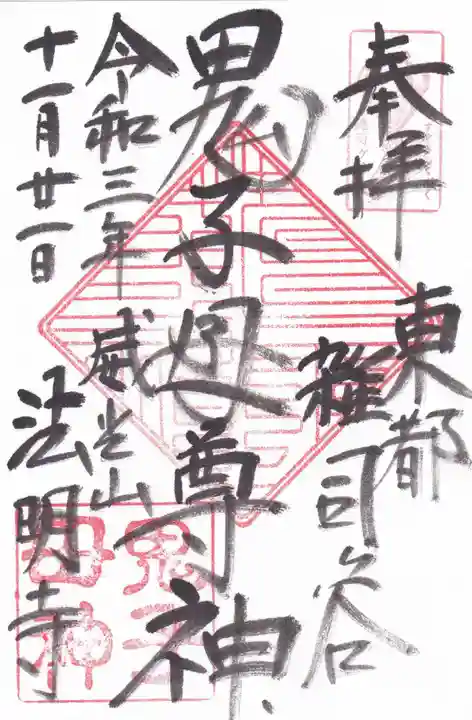 奉拝
東都
雑司谷
鬼子母尊神
威光山
法明寺
令和三年
十一月廿一日
鬼子
母神